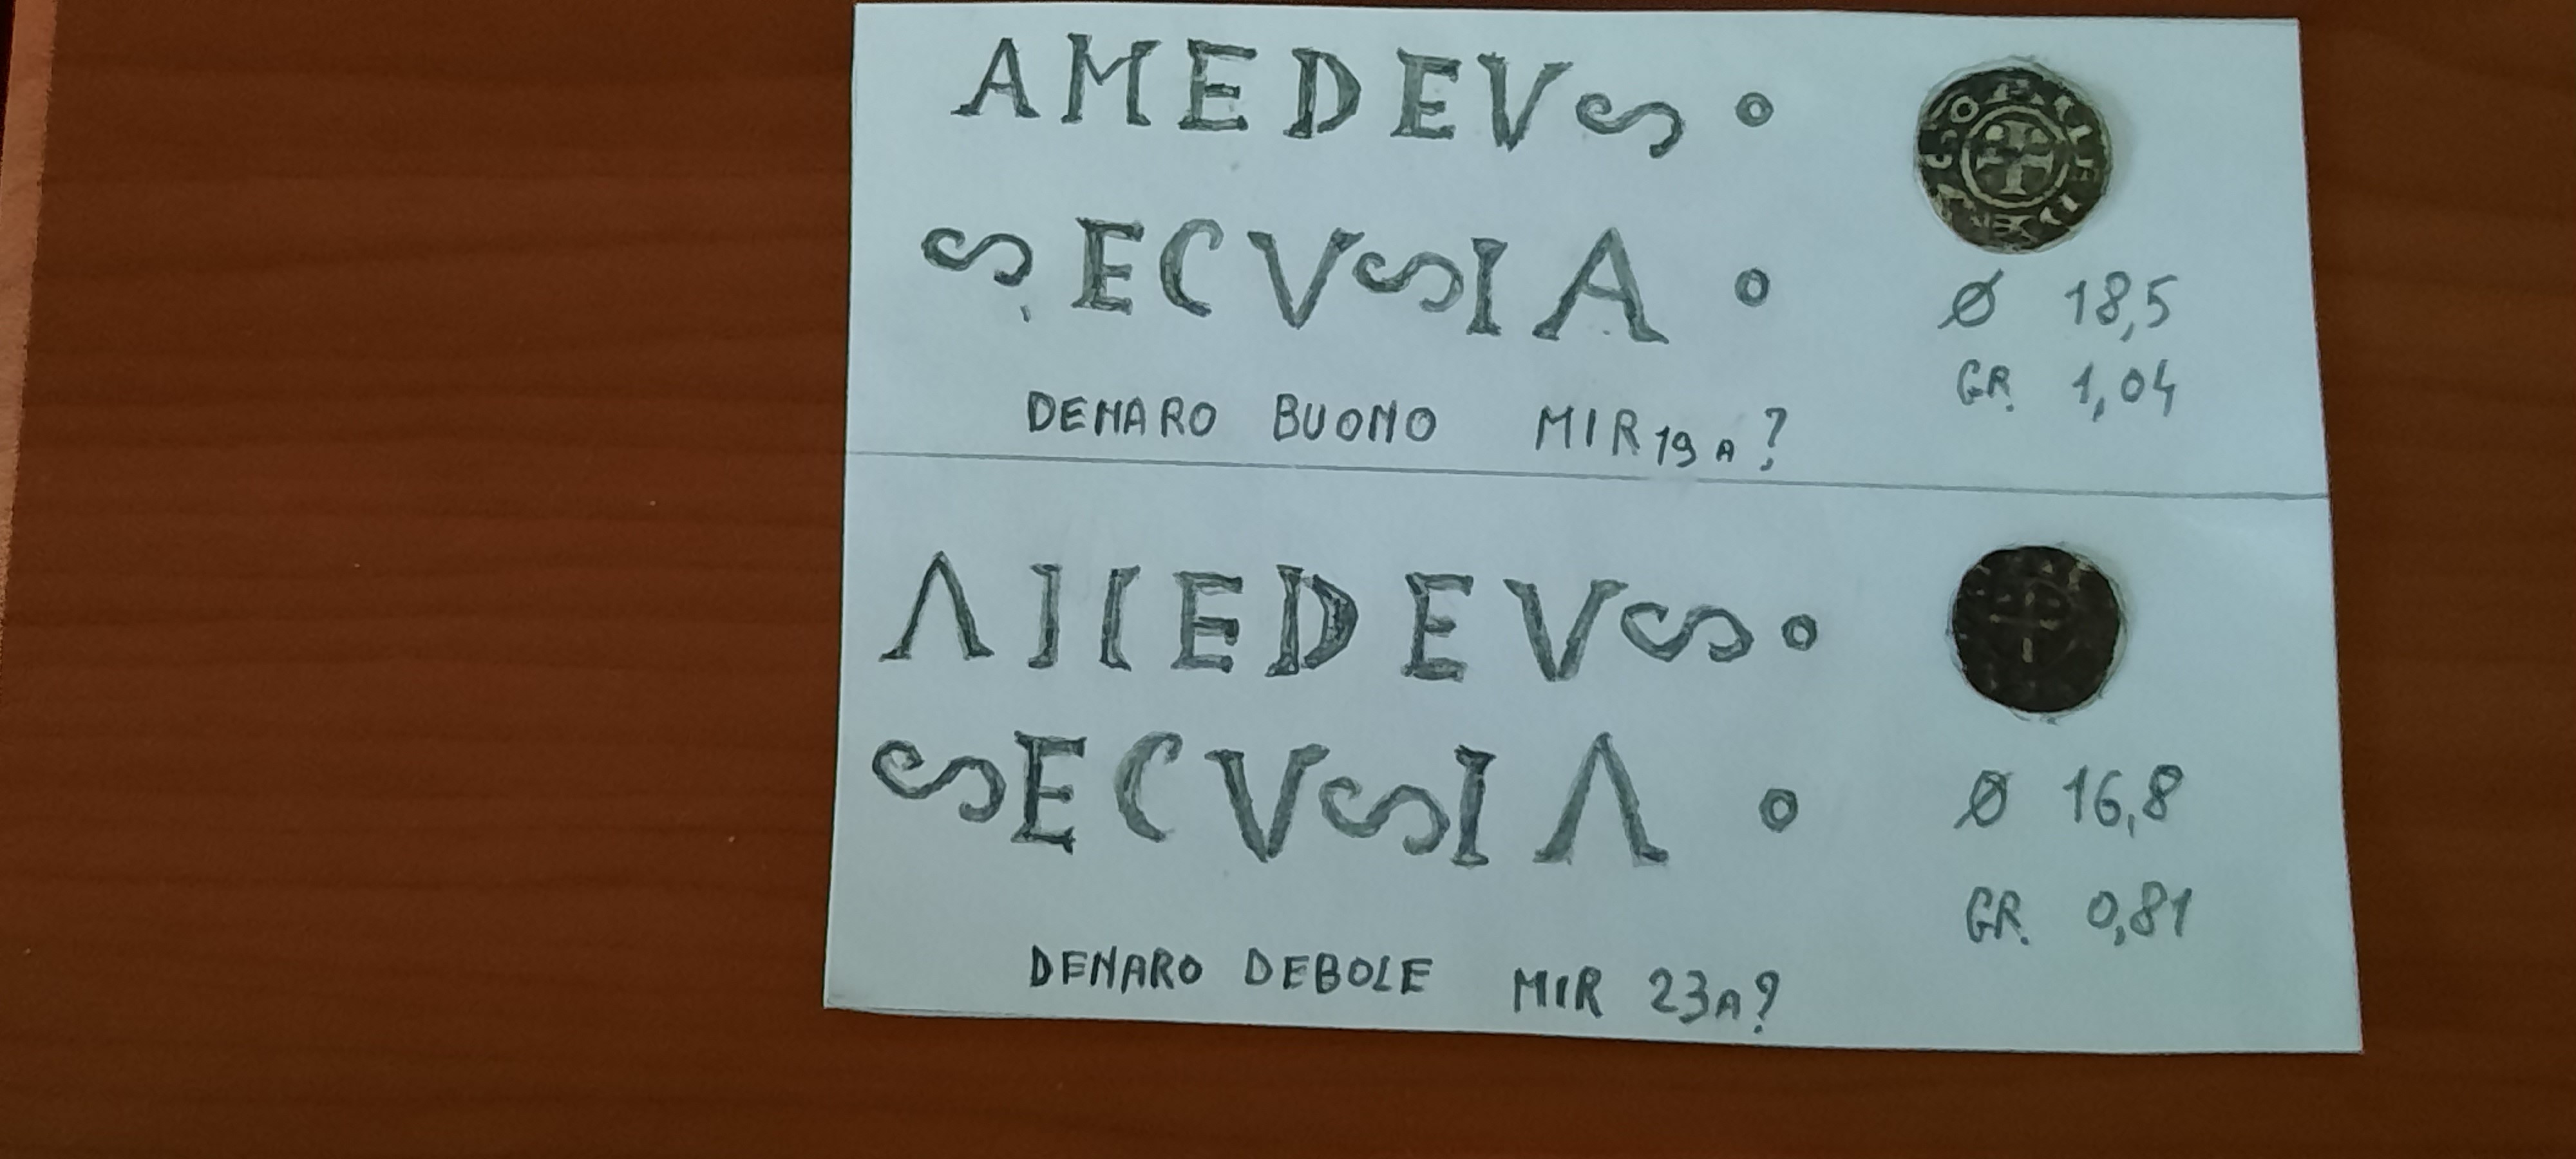 AMEDEVS o
SECVSIA o
DENARO BUONO MIR 19 A?
Ø 18,5
GR. 1,04
ΛIIEDEVS o
SECVSIΛ o
DENARO DEBOLE MIR 23A?
Ø 16,8
GR. 0,81